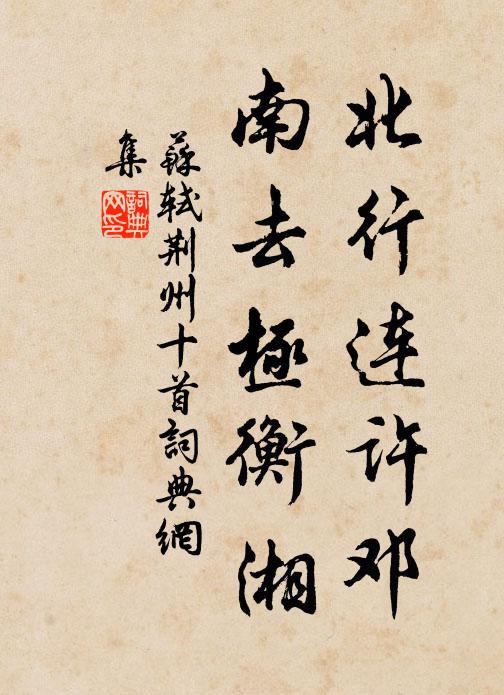 北行连许邓
南去極衡湘
蘇轼荆州十首詞典網
集
詞典网印